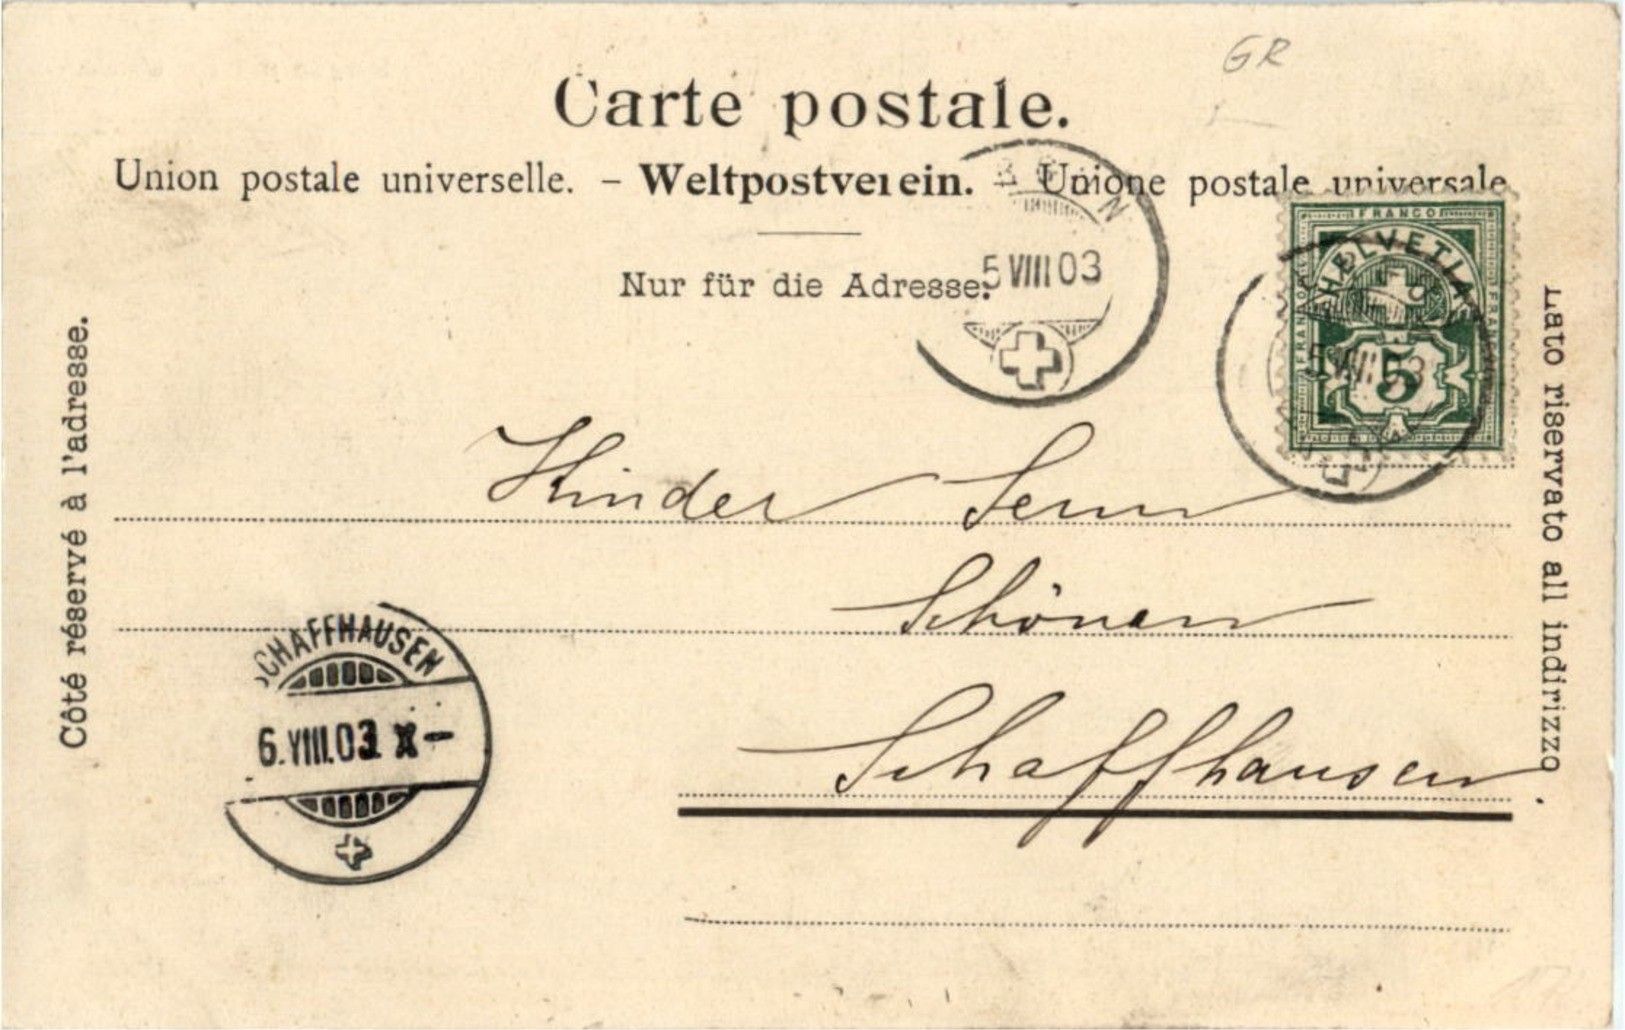 GR
Carte postale.
Union postale universelle. – Weltpostverein. – Unione postale universale
Nur für die Adresse.
5 VIII 03
FRANCO
HELVETIA
FRANCO
FRANCO
5
Côté réservé à l'adresse.
Lato riservato all indirizzo
Kinder Senn
Schönau
Schaffhausen.
SCHAFFHAUSEN
6.VIII.03. X–